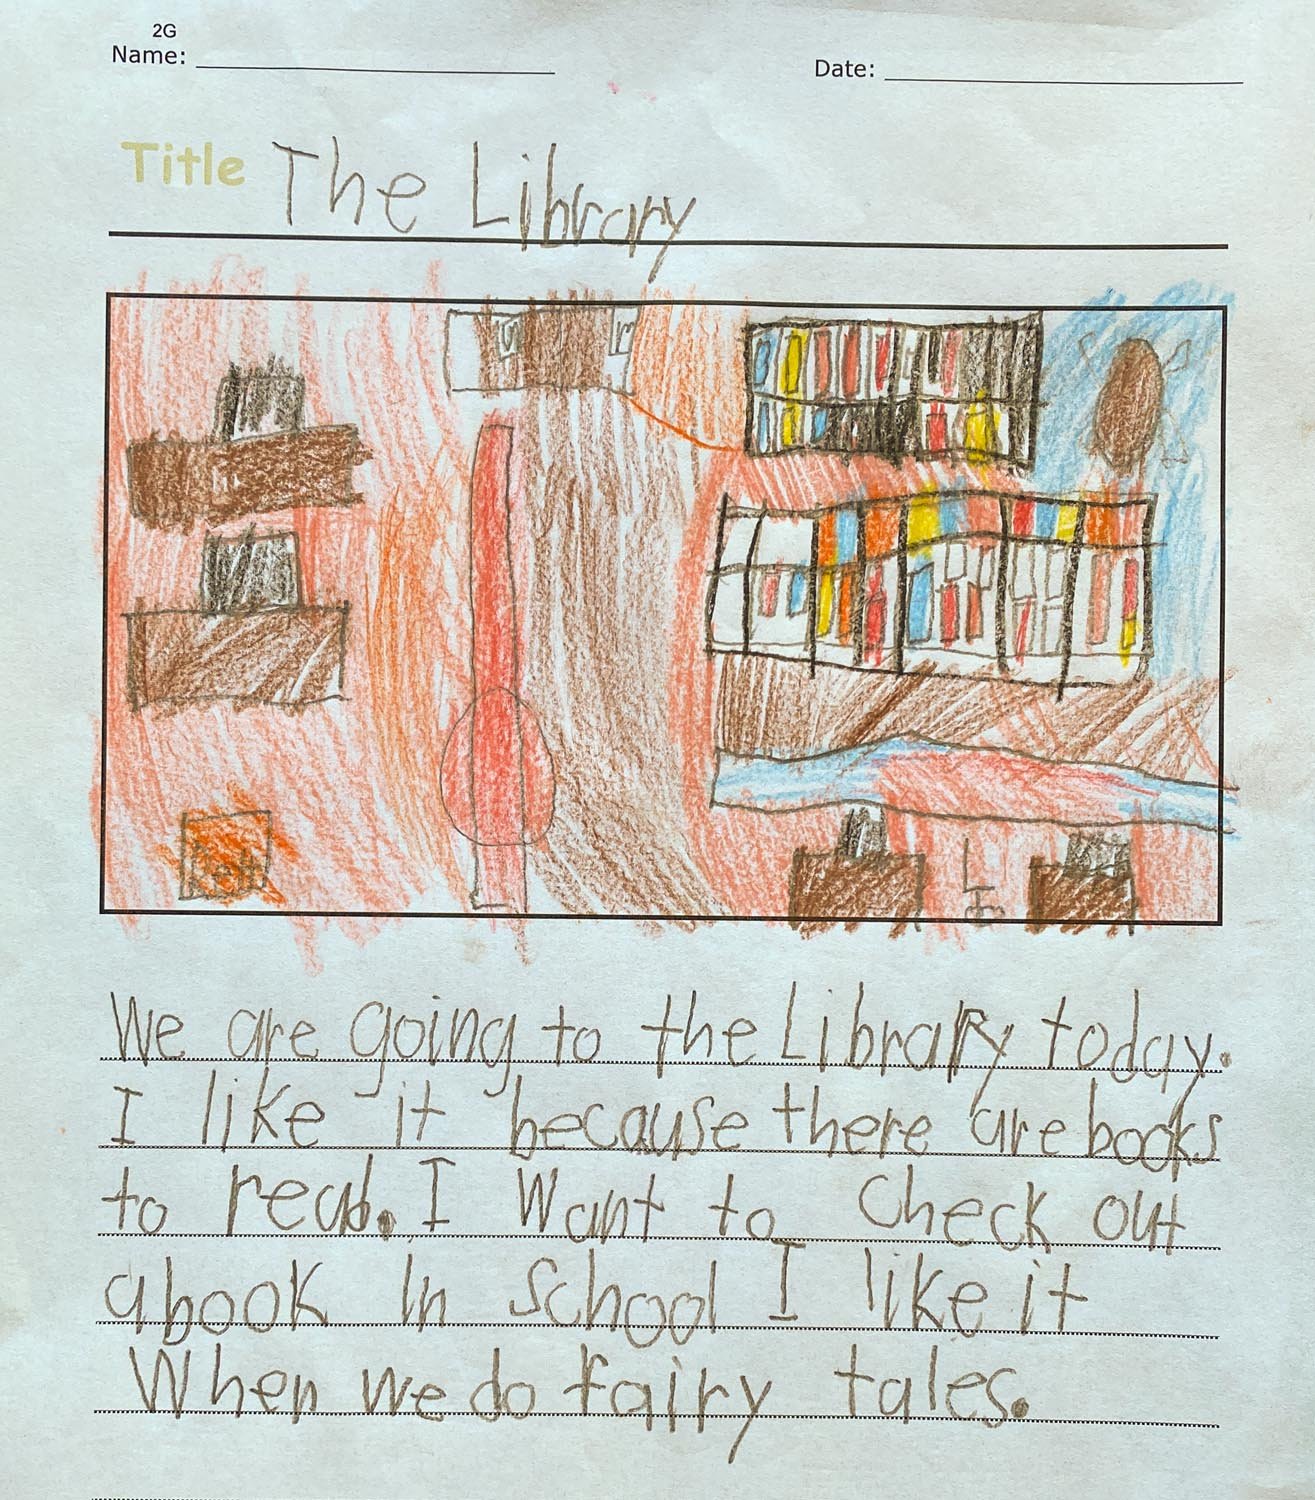 2G
Name:
Date:
Title The Library
We are going to the Library today.
I like it because there are books
to read. I Want to Check out
a book In School I like it
When we do fairy tales.